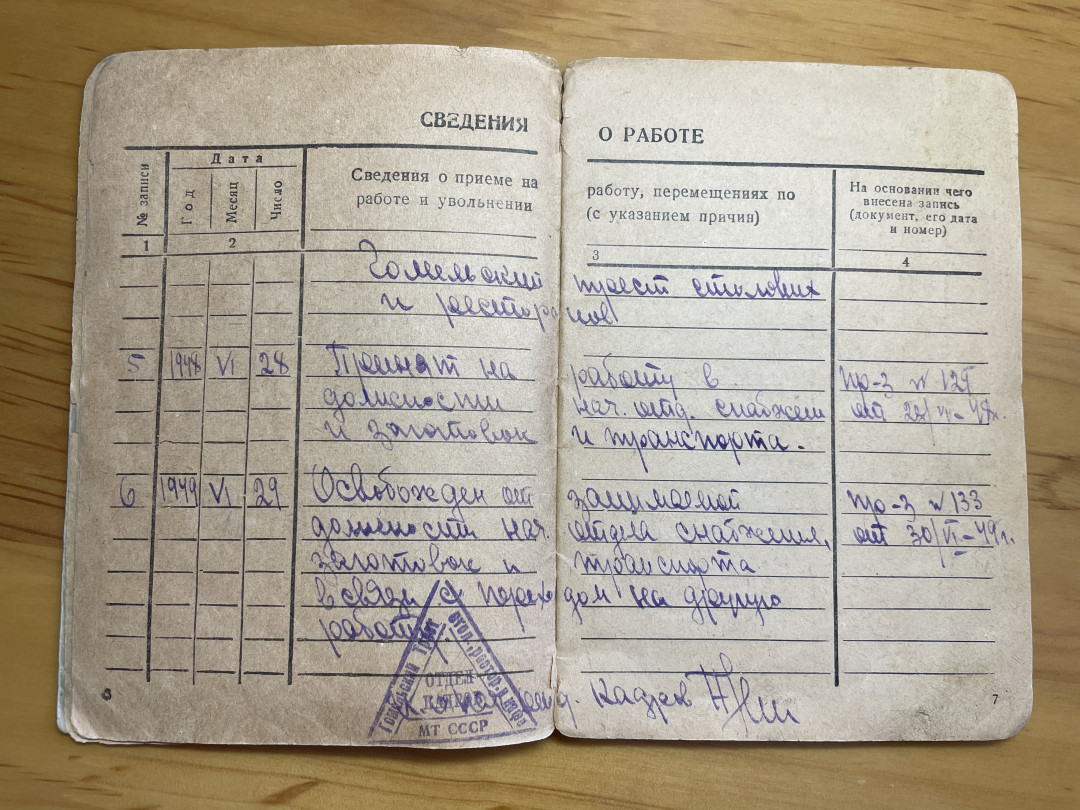 СВЕДЕНИЯ О РАБОТЕ
№ записи
Дата
Год
Месяц
Число
Сведения о приеме на работу, перемещениях по
работе и увольнении (с указанием причин)
На основании чего
внесена запись
(документ, его дата
и номер)
1 2 3 4
Гомельский трест столовых
и ресторанов
5 1948 VI 28 Принят на работу в пр-з №129
должности нач. отд. снабжен от 22/VI-48г.
и заготовок и транспорта.
6 1949 VI 29 Освобожден от занимаемой пр-з №133
должности нач. отдела снабжения, от 30/VI-49г.
заготовок и транспорта
в связи с переходом на другую
работу.
Гомельский Трест
стол., рестор. и кафе
ОТДЕЛ
КАДРОВ
МТ СССР
отд. кадров
6 7